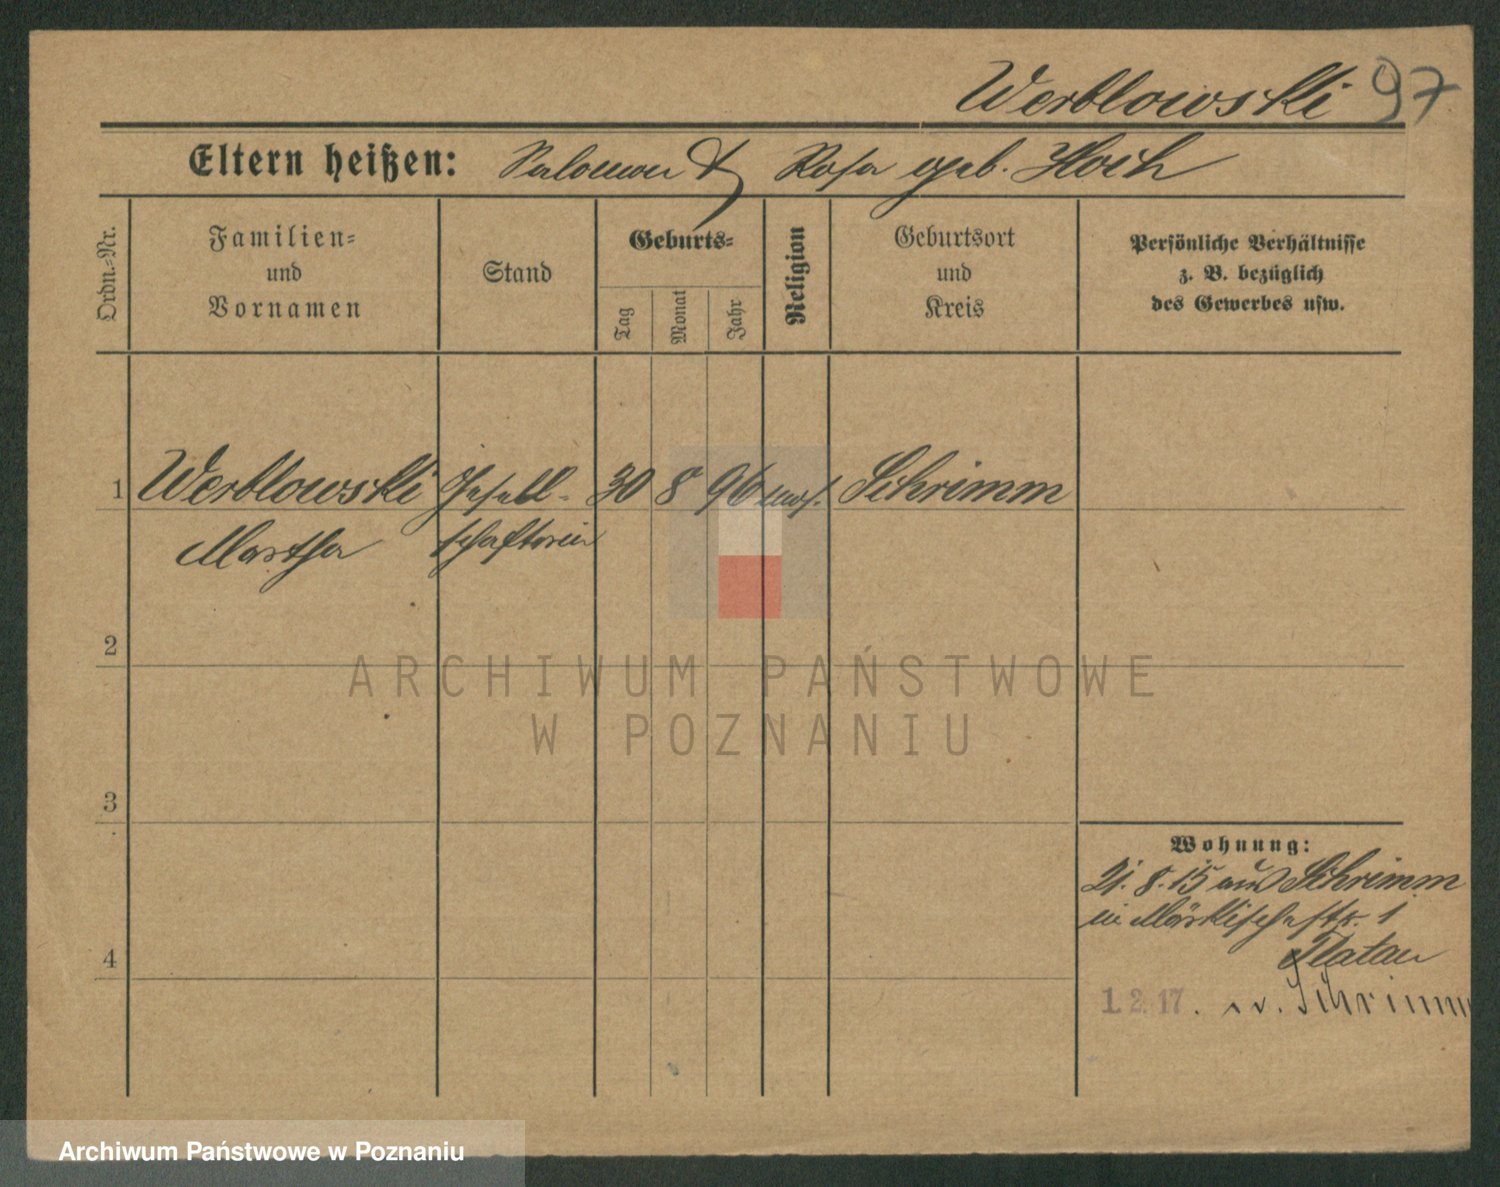 Werblowski 97
Eltern heißen: Salomon & Rosa geb. Hoch
Ordn.-Nr.
Familien-
und
Vornamen
Stand
Geburts-
Tag
Monat
Jahr
Religion
Geburtsort
und
Kreis
Persönliche Verhältnisse
z. B. bezüglich
des Gewerbes usw.
1 Werblowski Gesell- 30 8 96 mos. Schrimm
Martha schafterin
2
ARCHIWUM PAŃSTWOWE
W POZNANIU
3
Wohnung:
21. 8. 15 aus Schrimm
in Märkischestr. 1
4
Flatau
1. 2. 17. n. Schrimm
Archiwum Państwowe w Poznaniu